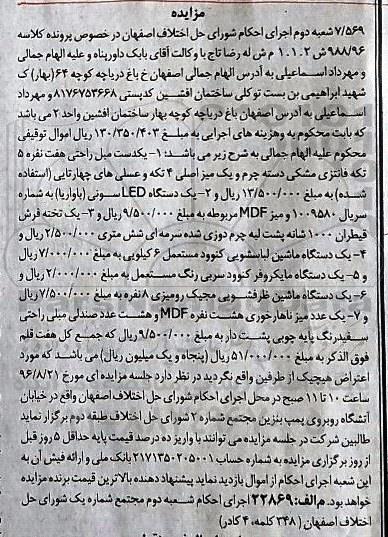 مزایده
۷/۵۶۹ شعبه دوم اجرای احکام شورای حل اختلاف اصفهان در خصوص پرونده کلاسه
۹۸۸/۹۶ش۱.۱.۲ م ش له رضا تاج با وکالت آقای بابک داورپناه و علیه الهام جمالی
و مهرداد اسماعیلی به آدرس الهام جمالی اصفهان خ باغ دریاچه کوچه ۶۴ (بهار) ک
شهید ابراهیمی بن بست توکلی ساختمان افشین کدپستی ۸۱۷۶۷۵۳۶۶۸ و مهرداد
اسماعیلی به آدرس اصفهان باغ دریاچه کوچه بهار ساختمان افشین واحد ۲ می باشد
که بابت محکوم به وهزینه های اجرایی به مبلغ ۱۳۰/۳۵۰/۴۰۳ ریال اموال توقیفی
محکوم علیه الهام جمالی به شرح زیر می باشد: ۱- یکدست مبل راحتی هفت نفره ۵
تکه فانتزی مشکی دسته چرم و یک میز اصلی ۴ تکه و عسلی های چهارتایی (استفاده
شده) به مبلغ ۱۳/۵۰۰/۰۰۰ ریال و ۲- یک دستگاه LED سونی (باواریا) به شماره
سریال ۱۰۰۹۵۸۰ و میز MDF مربوطه به مبلغ ۹/۵۰۰/۰۰۰ ریال و ۳- یک تخته فرش
قیطران ۱۰۰۰ شانه پشت لبه چرم دوزی شده سرمه ای شش متری ۲/۵۰۰/۰۰۰ ریال و
۴- یک دستگاه ماشین لباسشویی کنوود مستعمل ۶ کیلویی به مبلغ ۷/۰۰۰/۰۰۰ ریال
و ۵- یک دستگاه مایکروفر کنوود سربی رنگ مستعمل به مبلغ ۲/۰۰۰/۰۰۰ ریال و
۶- یک دستگاه ماشین ظرفشویی مجیک رومیزی ۸ نفره به مبلغ ۷/۵۰۰/۰۰۰ ریال
و ۷- یک عدد میز ناهارخوری هشت نفره MDF و هشت عدد صندلی مبلی راحتی
سفیدرنگ پایه چوبی پشت دار به مبلغ ۹/۵۰۰/۰۰۰ ریال که جمع کل هفت قلم
فوق الذکر به مبلغ ۵۱/۰۰۰/۰۰۰ ریال (پنجاه و یک میلیون ریال) می باشد که مورد
اعتراض هیچیک از طرفین واقع نگردید در نظر دارد جلسه مزایده ای مورخ ۹۶/۸/۲۱
ساعت ۱۰ تا ۱۱ صبح در محل اجرای احکام شورای حل اختلاف اصفهان واقع در خیابان
آتشگاه روبروی پمپ بنزین مجتمع شماره ۲ شورای حل اختلاف طبقه دوم برگزار نماید
طالبین شرکت در جلسه مزایده می توانند با واریز ده درصد قیمت پایه حداقل ۵ روز قبل
از روز برگزاری مزایده به شماره حساب ۲۱۷۱۳۵۰۲۰۵۰۰۱ بانک ملی و ارائه فیش آن به
این شعبه اجرای احکام از اموال بازدید نماید پیشنهاد دهنده بالاترین قیمت برنده مزایده
خواهد بود. م الف: ۲۲۸۶۹ اجرای احکام شعبه دوم مجتمع شماره یک شورای حل
اختلاف اصفهان (۳۴۸ کلمه، ۴ کادر)